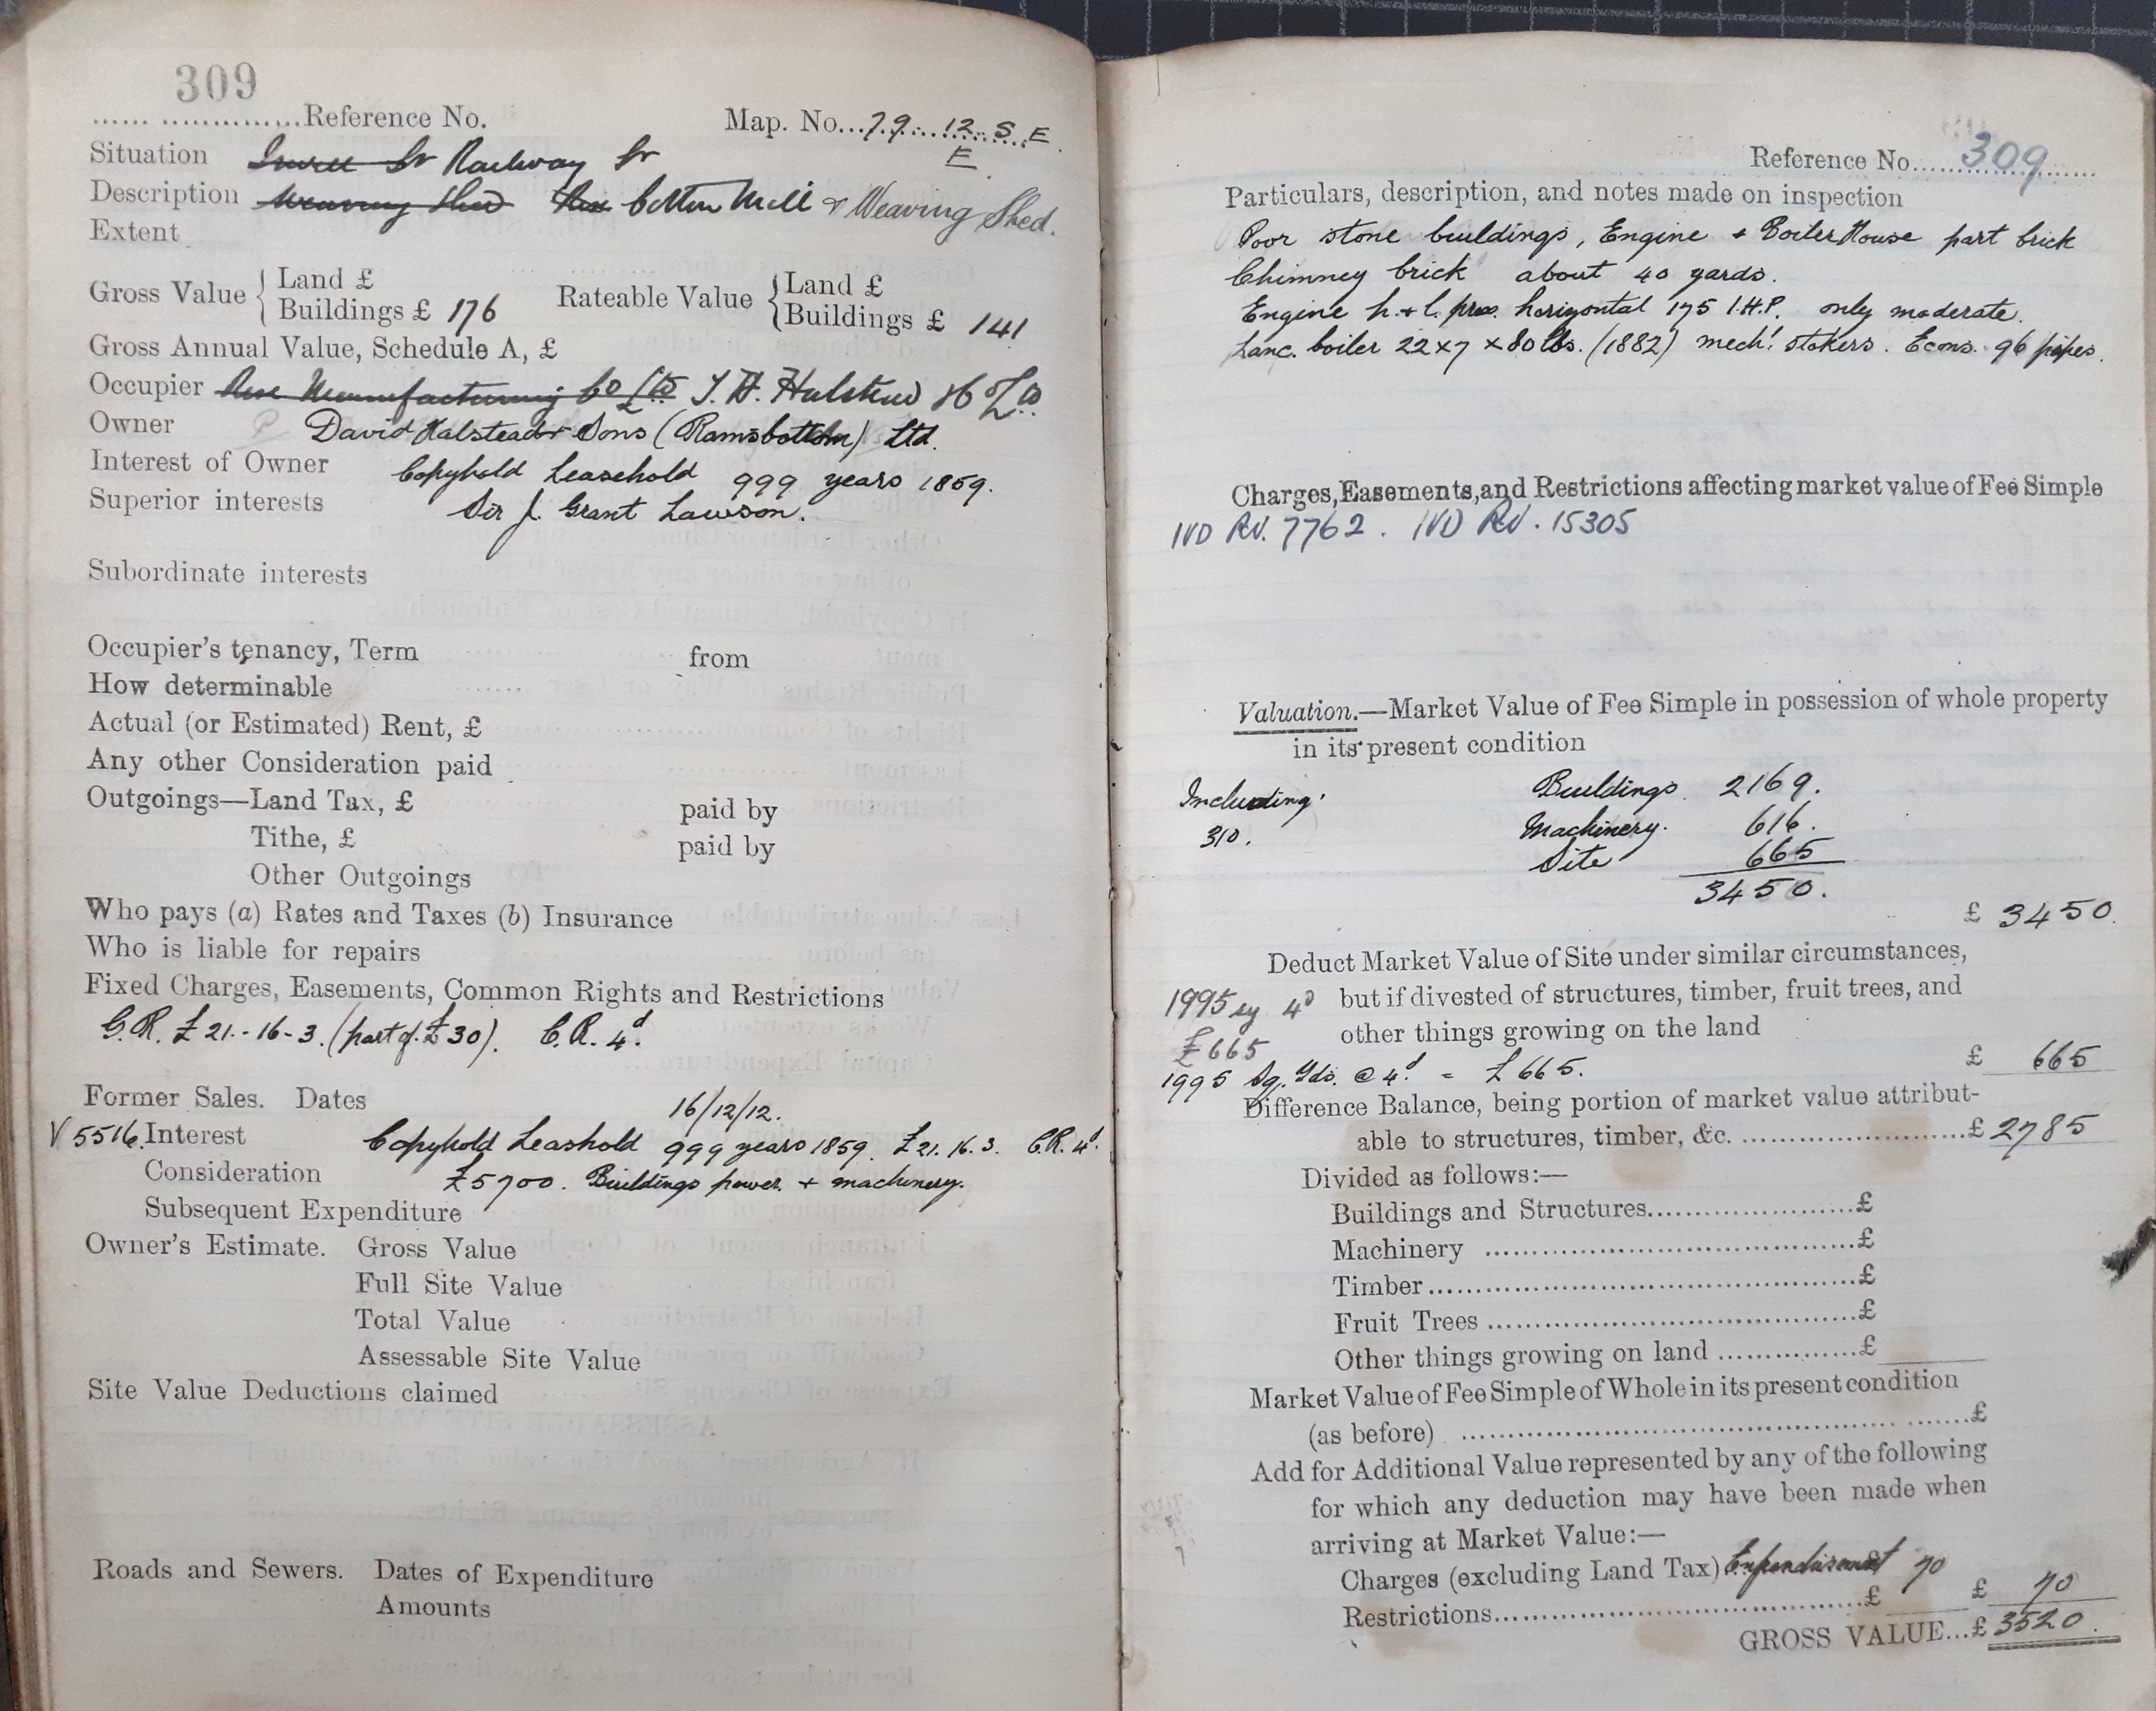 309
Reference No. Map. No. 79 12 S E
E
Situation Irwell St Railway St
Description Weaving Shed Cotton Mill & Weaving Shed.
Extent
Gross Value { Land £ Rateable Value { Land £
Buildings £ 176 Buildings £ 141
Gross Annual Value, Schedule A, £
Occupier Manufacturing Co Ltd J. H. Halstead Ltd.
Owner David Halstead & Sons (Ramsbottom) Ltd.
Interest of Owner Copyhold Leasehold 999 years 1859.
Superior interests Sir J. Grant Lawson.
Subordinate interests
Occupier's tenancy, Term from
How determinable
Actual (or Estimated) Rent, £
Any other Consideration paid
Outgoings—Land Tax, £ paid by
Tithe, £ paid by
Other Outgoings
Who pays (a) Rates and Taxes (b) Insurance
Who is liable for repairs
Fixed Charges, Easements, Common Rights and Restrictions
G.R. £21-16-3. (part of £30). C.R. 4d.
Former Sales. Dates 16/12/12.
V 5516. Interest Copyhold Leashold 999 years 1859. £21.16.3. C.R. 4d.
Consideration £5700. Buildings power + machinery.
Subsequent Expenditure
Owner's Estimate. Gross Value
Full Site Value
Total Value
Assessable Site Value
Site Value Deductions claimed
Roads and Sewers. Dates of Expenditure
Amounts
Reference No. 309
Particulars, description, and notes made on inspection
Poor stone buildings, Engine + Boiler House part brick
Chimney brick about 40 yards.
Engine h. + l. pres. horizontal 175 I.H.P. only moderate.
Lanc. boiler 22 x 7 x 80 lbs. (1882) mechl. stokers. Econs. 96 pipes.
Charges, Easements, and Restrictions affecting market value of Fee Simple
IVD RV. 7762. IVD RV. 15305
Valuation.—Market Value of Fee Simple in possession of whole property
in its present condition
Including Buildings. 2169.
310. Machinery. 616.
Site 665
3450.
£ 3450.
Deduct Market Value of Site under similar circumstances,
1995 sy 4d but if divested of structures, timber, fruit trees, and
£665 other things growing on the land
1995 Sq. Yds. @ 4d. = £665. £ 665
Difference Balance, being portion of market value attribut-
able to structures, timber, &c. £ 2785
Divided as follows:—
Buildings and Structures £
Machinery £
Timber £
Fruit Trees £
Other things growing on land £
Market Value of Fee Simple of Whole in its present condition
(as before) £
Add for Additional Value represented by any of the following
for which any deduction may have been made when
arriving at Market Value:—
Charges (excluding Land Tax) 70
Restrictions £ £ 70
GROSS VALUE...£ 3520.